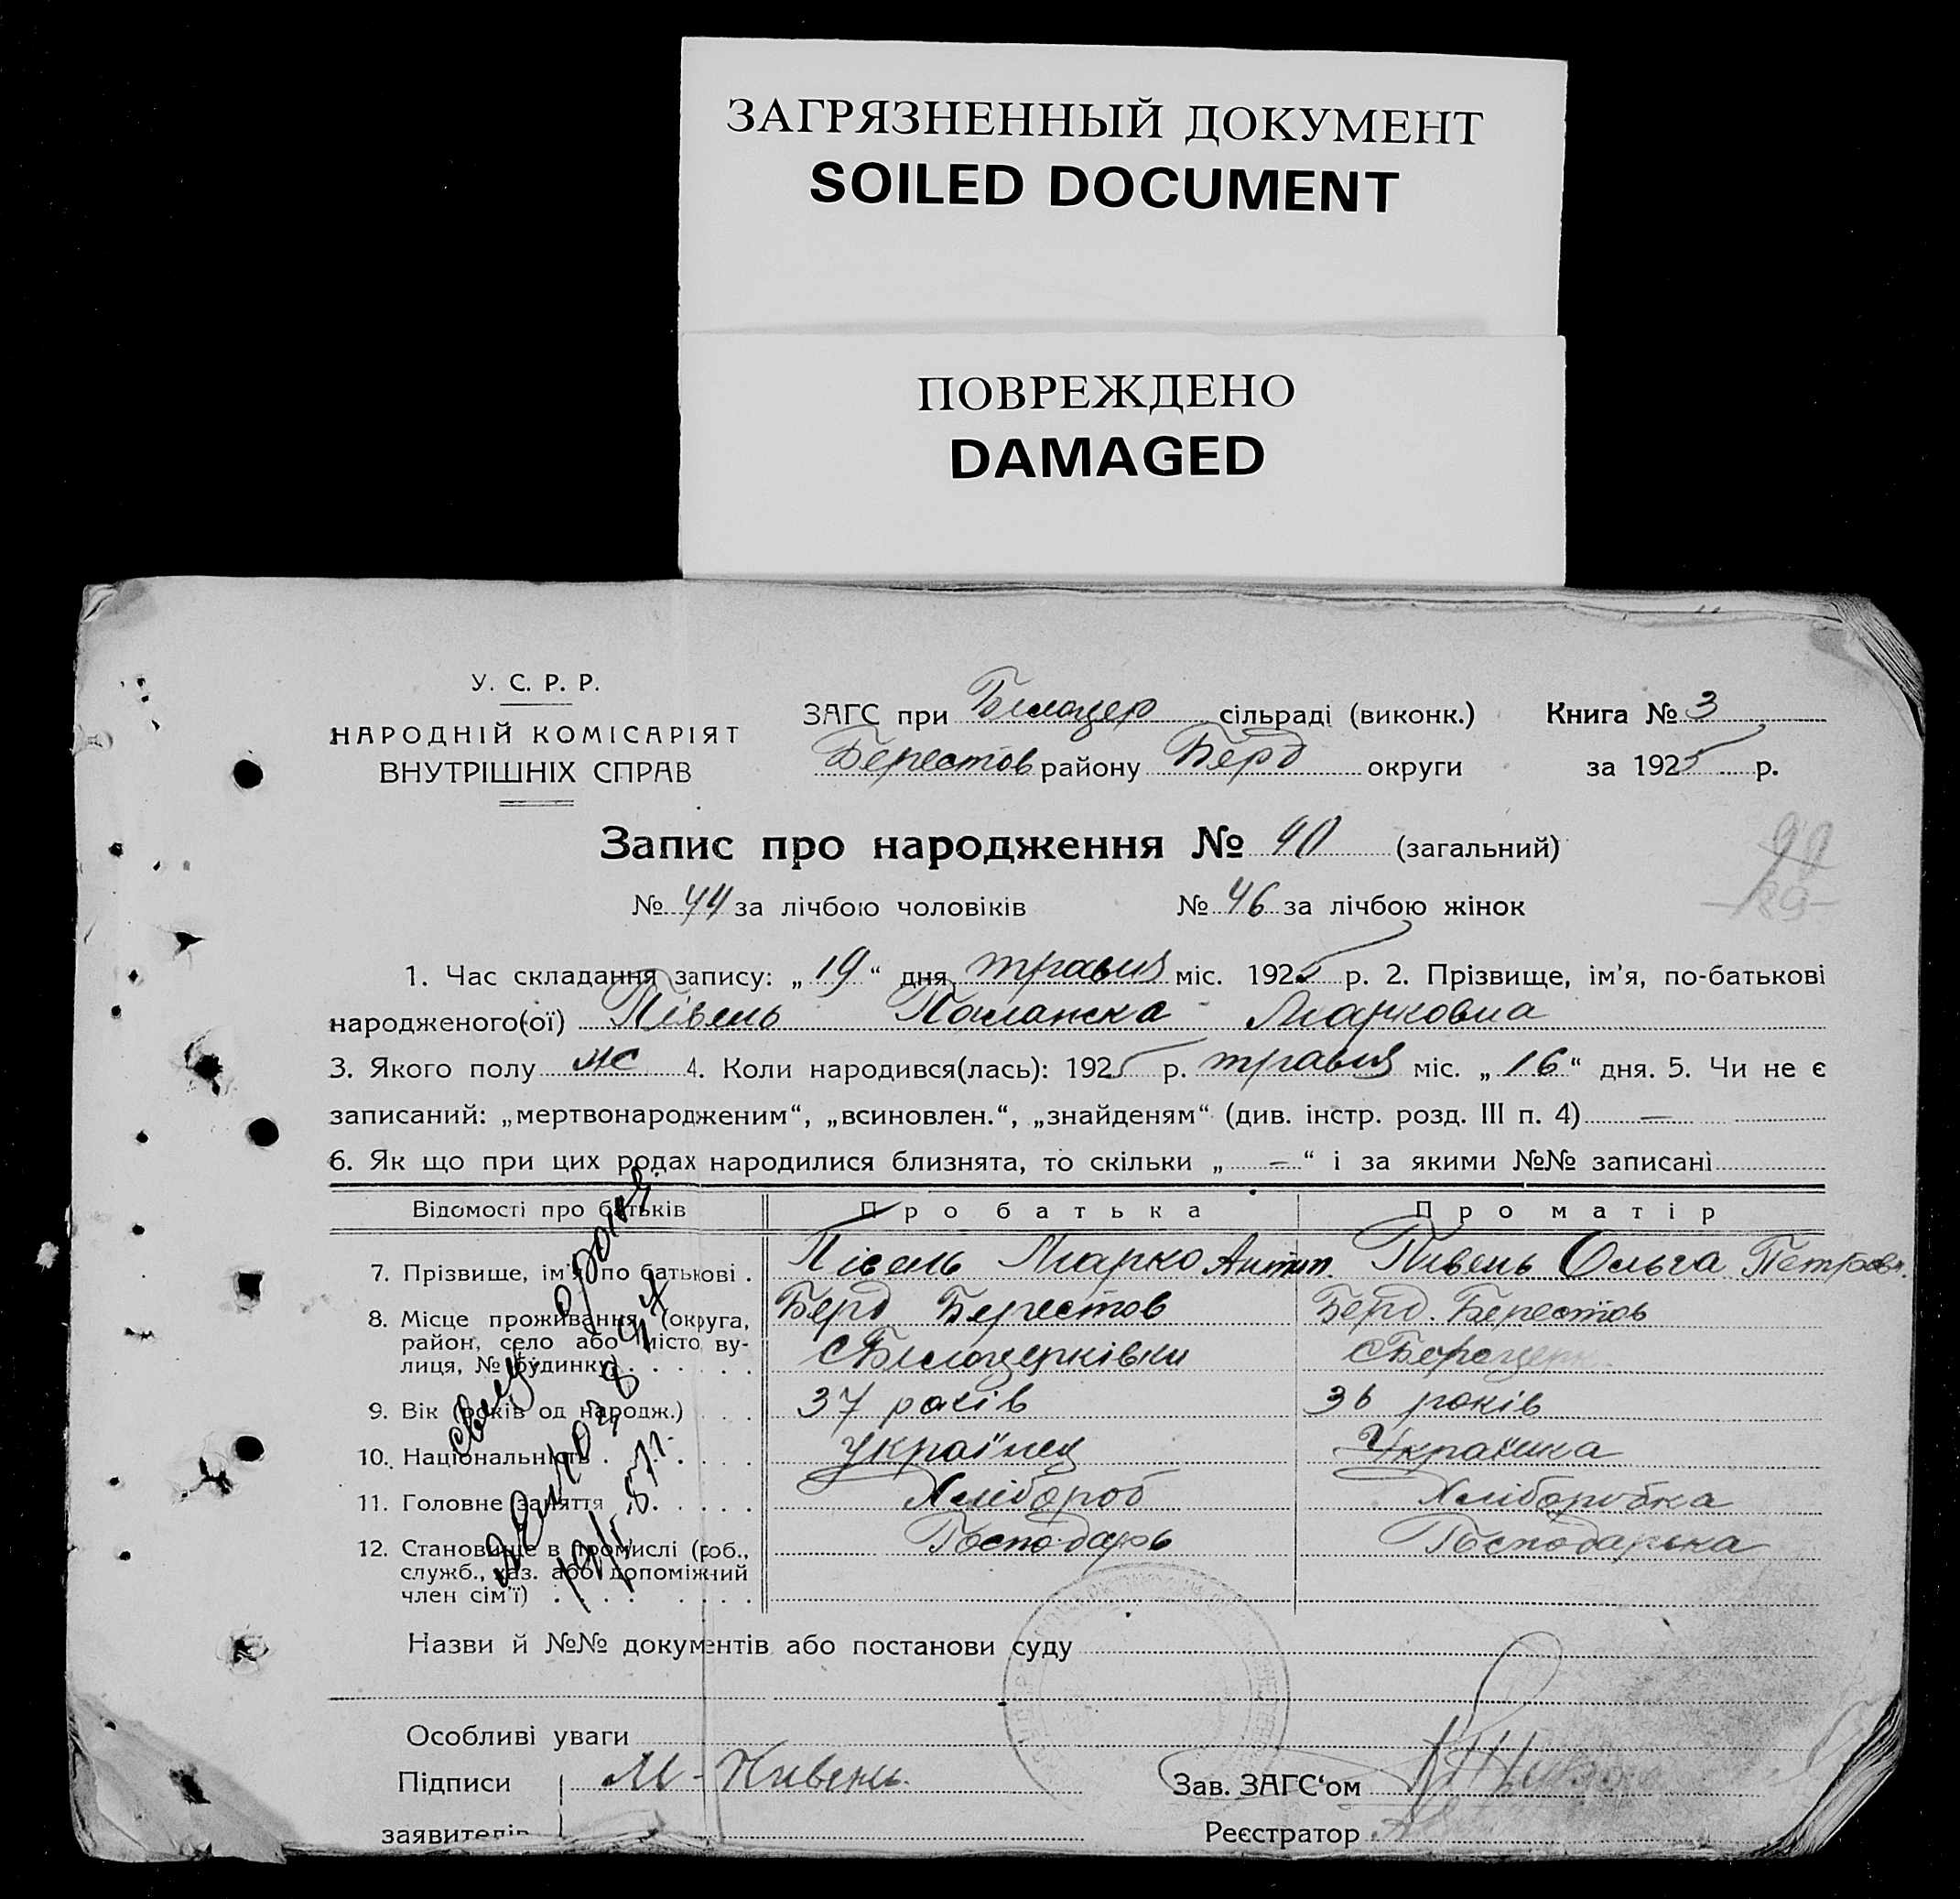 ЗАГРЯЗНЕННЫЙ ДОКУМЕНТ
SOILED DOCUMENT
ПОВРЕЖДЕНО
DAMAGED
У. С. Р. Р.
НАРОДНІЙ КОМІСАРІЯТ
ВНУТРІШНІХ СПРАВ
ЗАГС при Білоцер сільраді (виконк.) Книга № 3
Берестов району Берд округи за 1925 р.
Запис про народження № 90 (загальний)
99
29
№ 44 за лічбою чоловіків № 46 за лічбою жінок
1. Час складання запису: „ 19 “ дня травня міс. 1925 р. 2. Прізвище, ім’я, по-батькові
народженого(ої) Півень Палажка Марковна
3. Якого полу ж 4. Коли народився(лась): 1925 р. травня міс. „ 16 “ дня. 5. Чи не є
записаний: „мертвонародженим“, „всиновлен.“, „знайденям“ (див. інстр. розд. III п. 4) —
6. Як що при цих родах народилися близнята, то скільки „ — “ і за якими №№ записані
Відомості про батьків Про батька Про матір
7. Прізвище, ім’я, по батькові . Півень Марко Антип. Пивень Ольга Петровн.
8. Місце проживання (округа, Берд Берестов Берд. Берестов
район, село або місто, ву-
лиця, № будинку) . . . . с Білоцерківки
9. Вік (років од народж.) . . . 37 років 36 років
10. Національність . . . . . . українец Українка
11. Головне заняття . . . . . Хлібороб Хліборобка
12. Становище в промислі (роб., Господарь Господарька
служб., хаз. або допоміжний
член сім’ї) . . . . . . . .
Назви й №№ документів або постанови суду
Особливі уваги
Підписи М. Пивень Зав. ЗАГС‘ом
заявителів Реєстратор